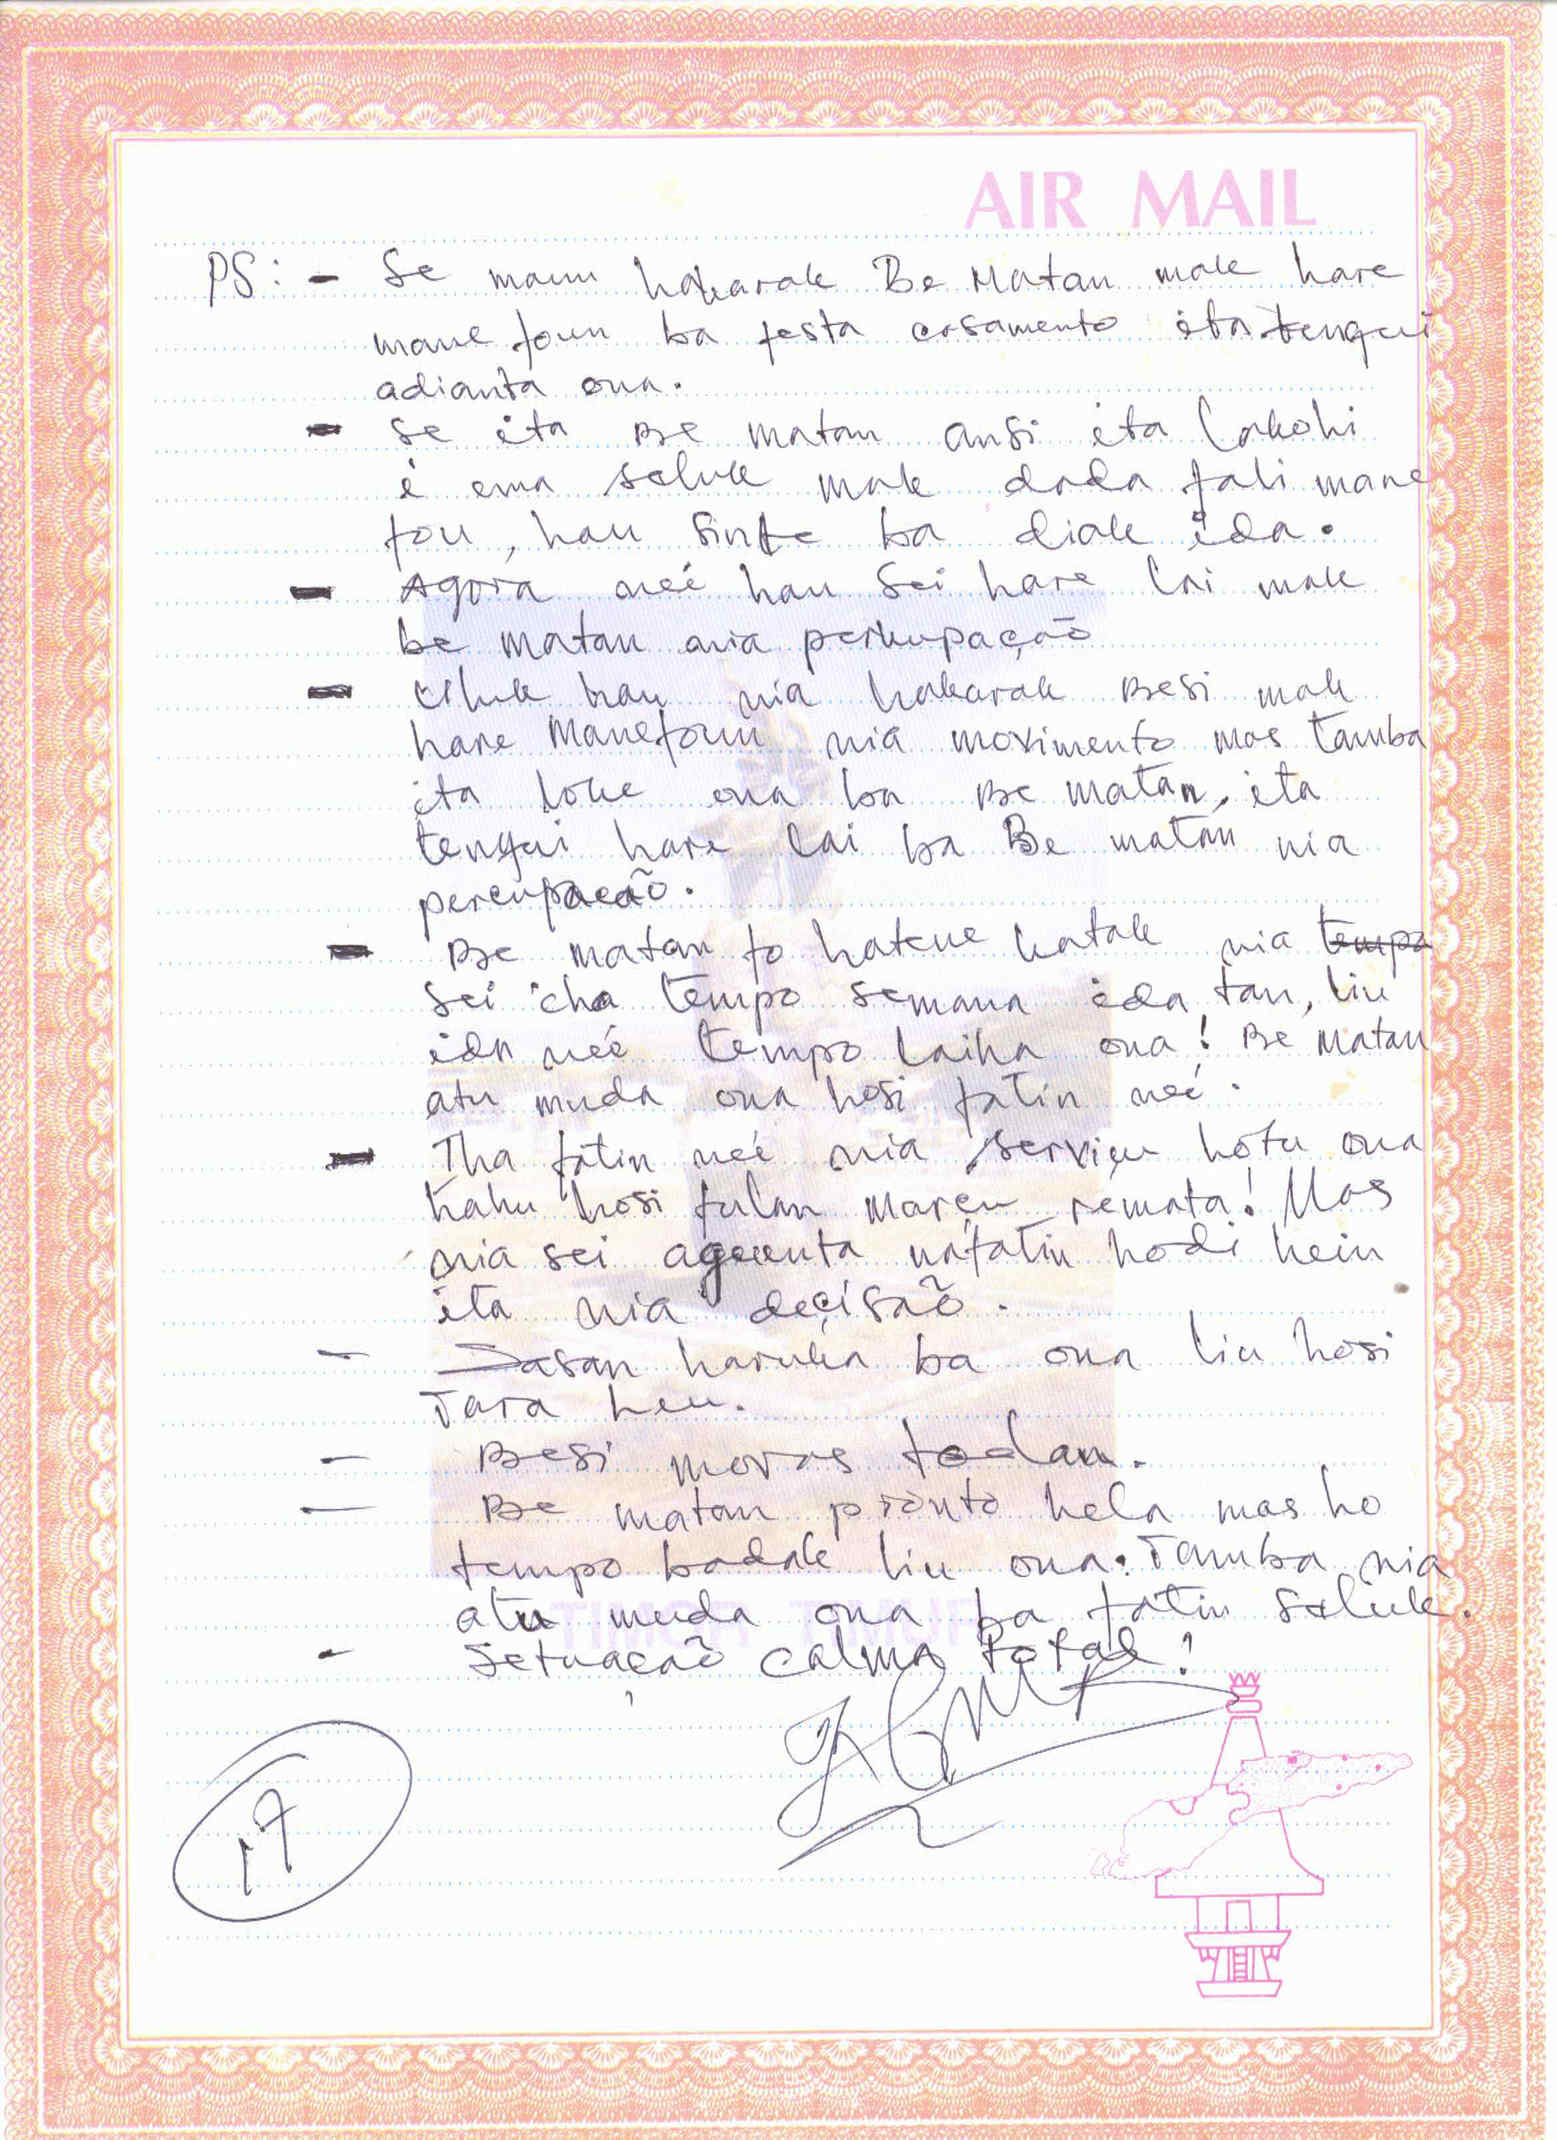 AIR MAIL
PS: - Se maun hakarak Be Matan mak hare
mane foun ba festa casamento ita tengui
adianta ona.
- Se ita Be matan ansi ita lakohi
é ema seluk mak dada fali mane
fou, hau sinte ba diak ida.
- Agora neé hau sei hare lai mak
be matan nia perkupação
- Uluk hau nia hakarak Besi mak
hare Manefoun nia movimento mas tamba
ita loke ona ba Be matan, ita
tengui hare lai ba Be matan nia
percupacão.
- Be matan fo hatene katak nia tempo
sei iha tempo semana ida tan, liu
ida neé tempo laiha ona! Be Matan
atu muda ona hosi fatin neé.
- Iha fatin neé nia serviçu hotu ona
hahu hosi fulan Marçu remata! Mas
nia sei aguenta nafatin hodi hein
ita nia deçisaõ.
- Sasan haruka ba ona liu hosi
Tara heu.
- Besi moras todan.
- Be matan pronto hela mas ho
tempo badak liu ona. Tamba nia
atu muda ona ba fatin seluk.
TIMOR TIMUR
- Setuação calma total!
17